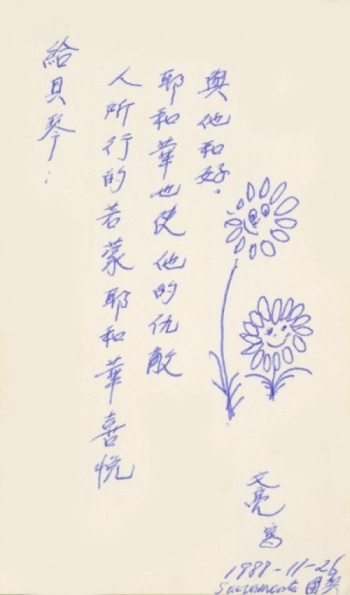 給貝琴：
人所行的若蒙耶和華喜悅
耶和華也使他的仇敵
與他和好.
文亮
寫
1988-11-26
Sacramento